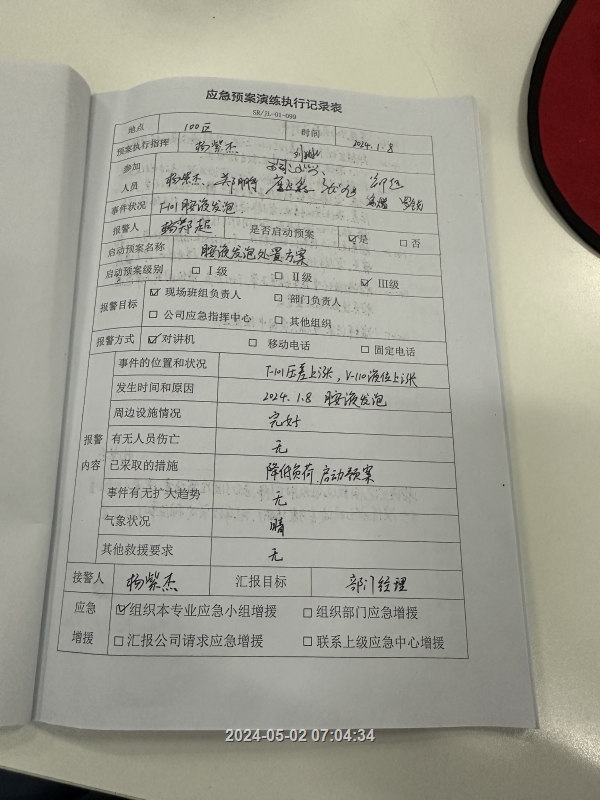 应急预案演练执行记录表
SR/JL-01-099
地点 100区 时间 2024.1.8
预案执行指挥 杨紫杰
参加人员 杨紫杰
事件状况 T-101胺液发泡
报警人 是否启动预案 ☑是 □否
启动预案名称 胺液发泡处置方案
启动预案级别 □Ⅰ级 □Ⅱ级 ☑Ⅲ级
报警目标 ☑现场班组负责人 □部门负责人
□公司应急指挥中心 □其他组织
报警方式 ☑对讲机 □移动电话 □固定电话
报警内容
事件的位置和状况 T-101压差上涨，V-110液位上涨
发生时间和原因 2024.1.8 胺液发泡
周边设施情况 完好
有无人员伤亡 无
已采取的措施 降低负荷.启动预案
事件有无扩大趋势 无
气象状况 晴
其他救援要求 无
接警人 杨紫杰 汇报目标 部门经理
应急增援 ☑组织本专业应急小组增援 □组织部门应急增援
□汇报公司请求应急增援 □联系上级应急中心增援
2024-05-02 07:04:34